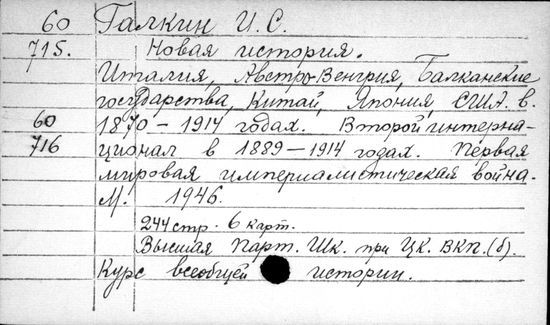 60 Галкин И. С.
715. Новая история.
Италия, Австро-Венгрия, Балканские
государства, Китай, Япония, США. в.
60 1870 – 1914 годах. Второй интерна-
716 ционал в 1889 – 1914 годах. Первая
мировая империалистическая война.
М. 1946.
244 стр. 6 карт.
Высшая Парт. Шк. при Цк. ВКП. (б).
Курс всеобщей истории.